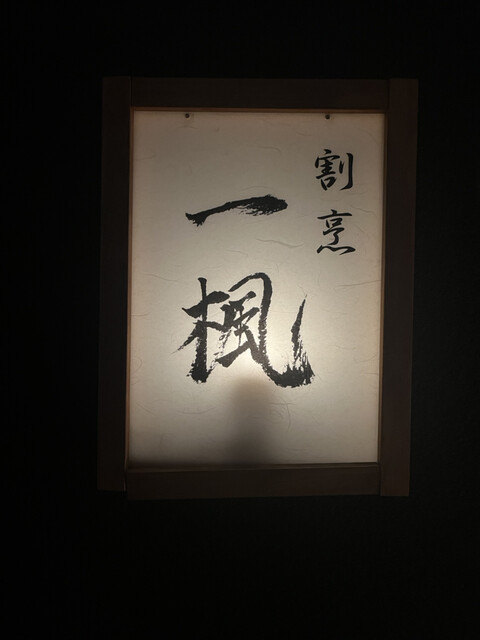 割烹
一楓